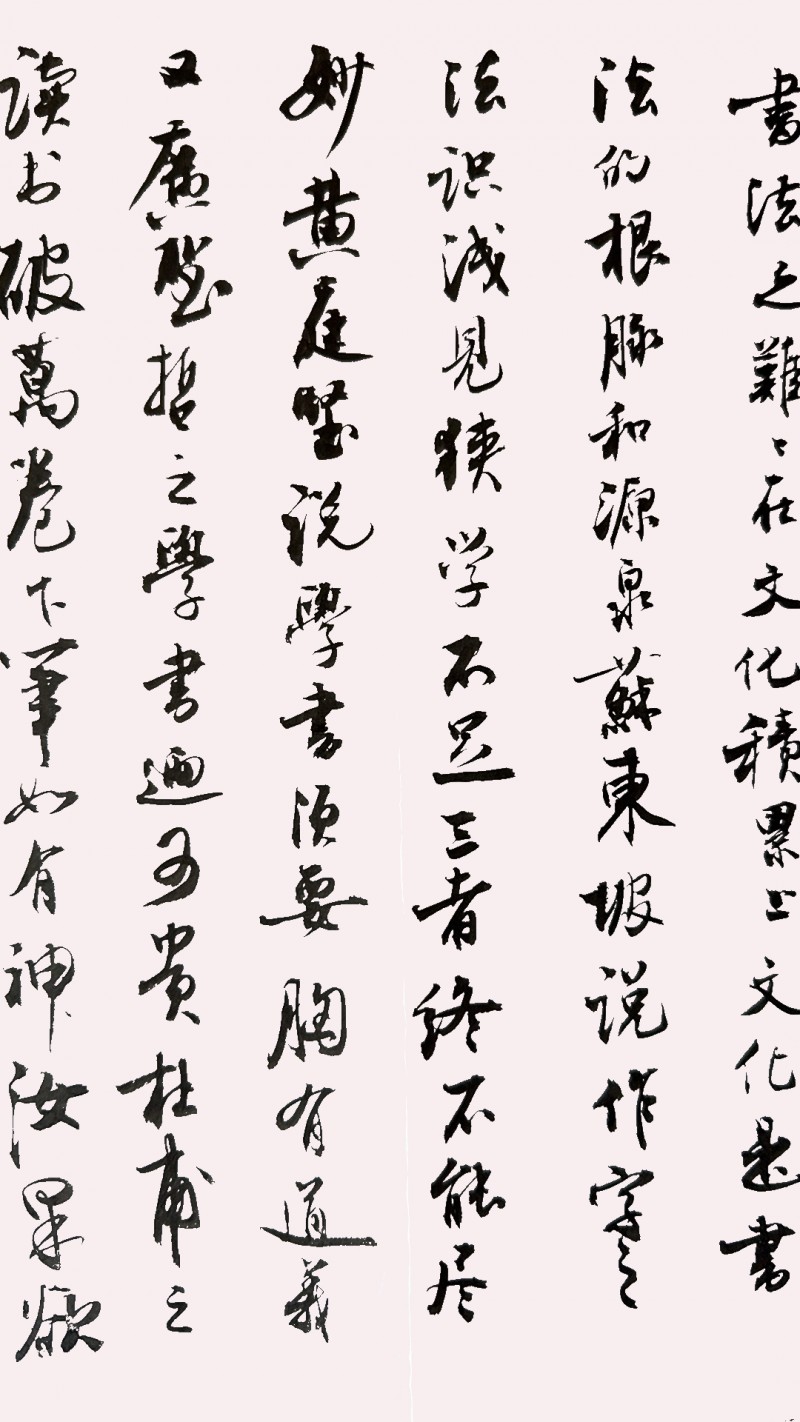 書法之難難在文化積累上文化是書
法的根脉和源泉蘇東坡说作字之
法识浅見狭学不足三者终不能尽
妙黄庭堅说學書须要胸有道義
又廣聖哲之學書迺可貴杜甫之
读书破萬卷下筆如有神汝果欲